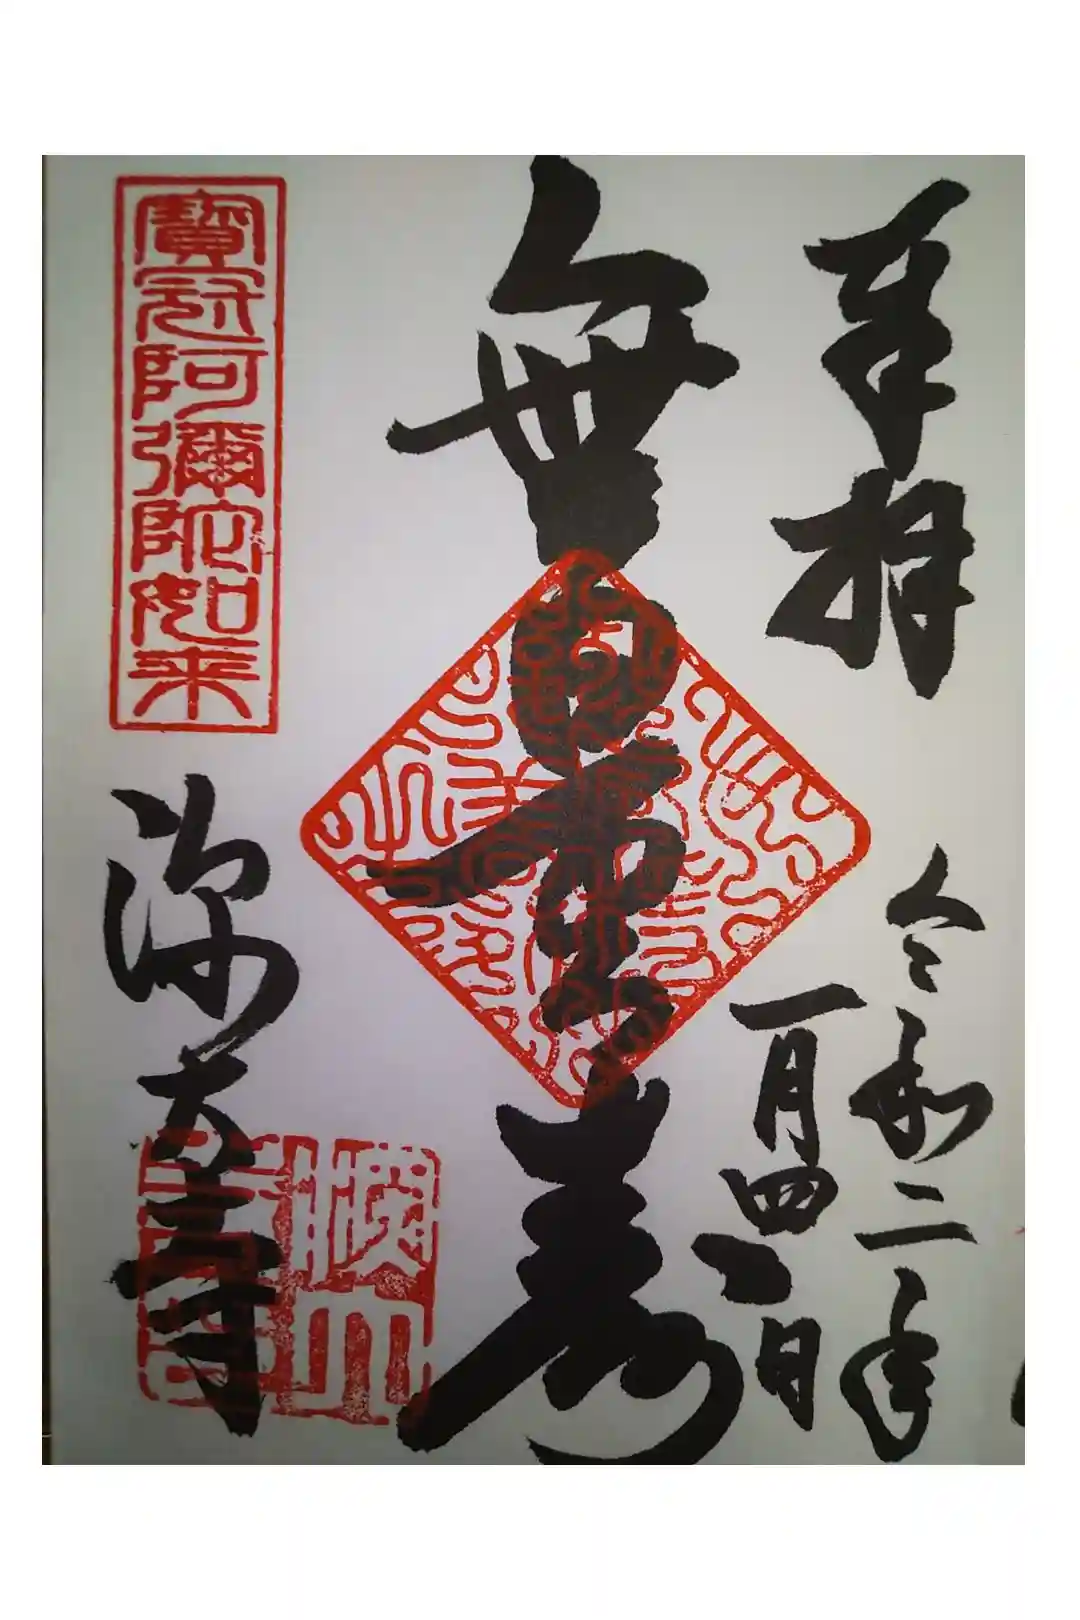 奉拝
令和二年
一月四日
無量寿
寶冠阿彌陀如来
深大寺